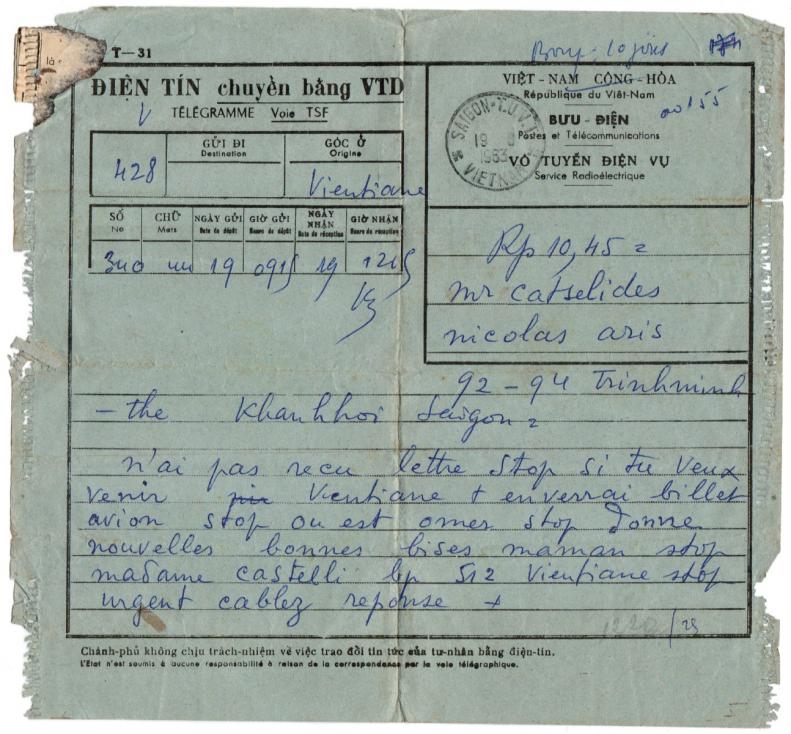 T-31
là
ĐIỆN TÍN chuyển bằng VTD
TÉLÉGRAMME Voie TSF
V
GỬI ĐI
Destination
GÓC Ở
Origine
428
Vientiane
SỐ
No
CHỮ
Mots
NGÀY GỬI
Date de dépôt
GIỜ GỬI
Heure de dépôt
NGÀY NHẬN
Date de réception
GIỜ NHẬN
Heure de réception
340 19 0915 19 1215
10 jours
VIỆT-NAM CỘNG-HÒA
République du Việt-Nam
00155
BƯU-ĐIỆN
Postes et Télécommunications
VÔ TUYẾN ĐIỆN VỤ
Service Radioélectrique
SAIGON-T.U.V.T
19
1963
VIETNAM
Rp 10,45 =
mr catselides
nicolas aris
92 - 94 Trinhminh
- the Khanhhoi Saigon =
n'ai pas recu lettre stop si tu veux
venir Vientiane + enverrai billet
avion stop ou est omer stop donne
nouvelles bonnes bises maman stop
madame castelli bp 512 Vientiane stop
urgent cablez reponse +
1220/25
Chánh-phủ không chịu trách-nhiệm về việc trao đổi tin tức của tư-nhân bằng điện-tín.
L'État n'est soumis à aucune responsabilité à raison de la correspondance par la voie télégraphique.